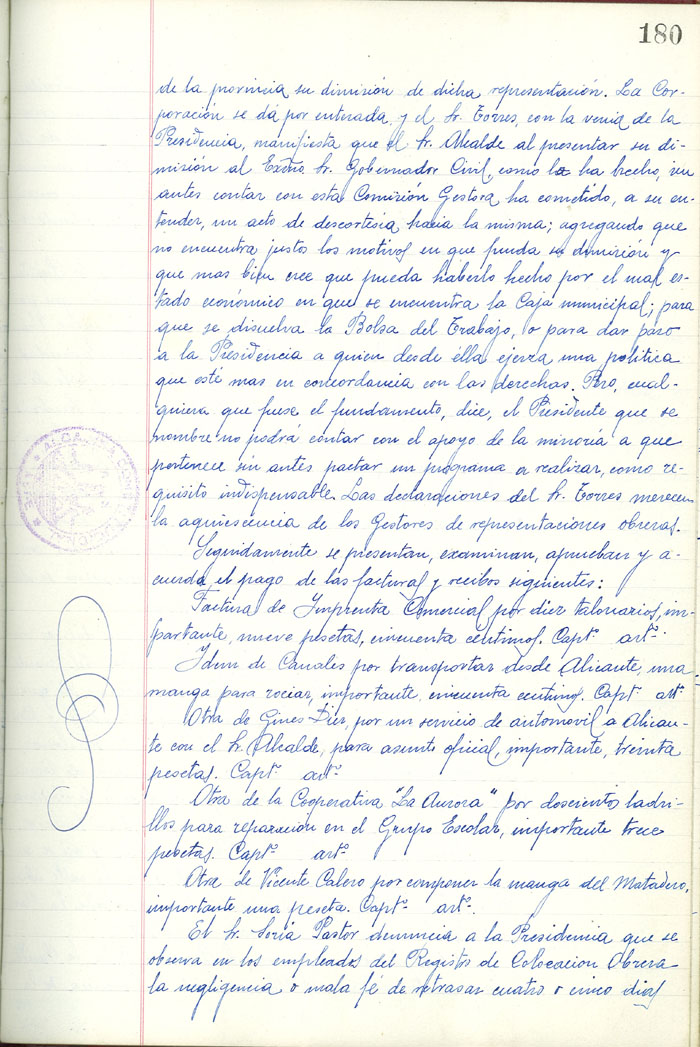 180
de la provincia su dimisión de dicha representación. La Cor-
poración se dá por enterada, y el Sr. Torres, con la venia de la
Presidencia, manifiesta que el Sr. Alcalde al presentar su di-
misión al Excmo. Sr. Gobernador Civil, como lo ha hecho, sin
antes contar con esta Comisión Gestora ha cometido, a su en-
tender, un acto de descortesia hacia la misma; agregando que
no encuentra justos los motivos en que funda su dimisión y
que mas bien cree que pueda haberlo hecho por el mal es-
tado económico en que se encuentra la Caja municipal; para
que se disuelva la Bolsa del Trabajo, o para dar paso
a la Presidencia a quien desde élla ejerza una politica
que esté mas en concordancia con las derechas. Pero, cual-
quiera que fuese el fundamento, dice, el Presidente que se
nombre no podrá contar con el apoyo de la minoría a que
pertenece sin antes pactar un programa a realizar, como re-
quisito indispensable. Las declaraciones del Sr. Torres merecen
la aquiescencia de los Gestores de representaciones obreras.
Seguidamente se presentan, examinan, aprueban y a-
cuerda, el pago de las facturas y recibos siguientes:
Factura de Imprenta Comercial, por diez talonarios, im-
portante, nueve pesetas, cincuenta céntimos. Capt.º art.º
Idem de Canales por transportar desde Alicante, una
manga para rociar, importante, cincuenta centimos. Capt.º art.º
Otra de Ginés Diez, por un servicio de automovil a Alican-
te con el Sr. Alcalde, para asunto oficial, importante, treinta
pesetas. Capt.º art.º
Otra de la Cooperativa "La Aurora" por doscientos ladri-
llos para reparación en el Grupo Escolar, importante trece
pesetas. Capt.º art.º
Otra de Vicente Calero por componer la manga del Matadero,
importante una peseta. Capt.º art.º
El Sr. Soria Pastor denuncia a la Presidencia que se
observa en los empleados del Registro de Colocacion Obrera
la negligencia o mala fé de retrasar cuatro o cinco dias